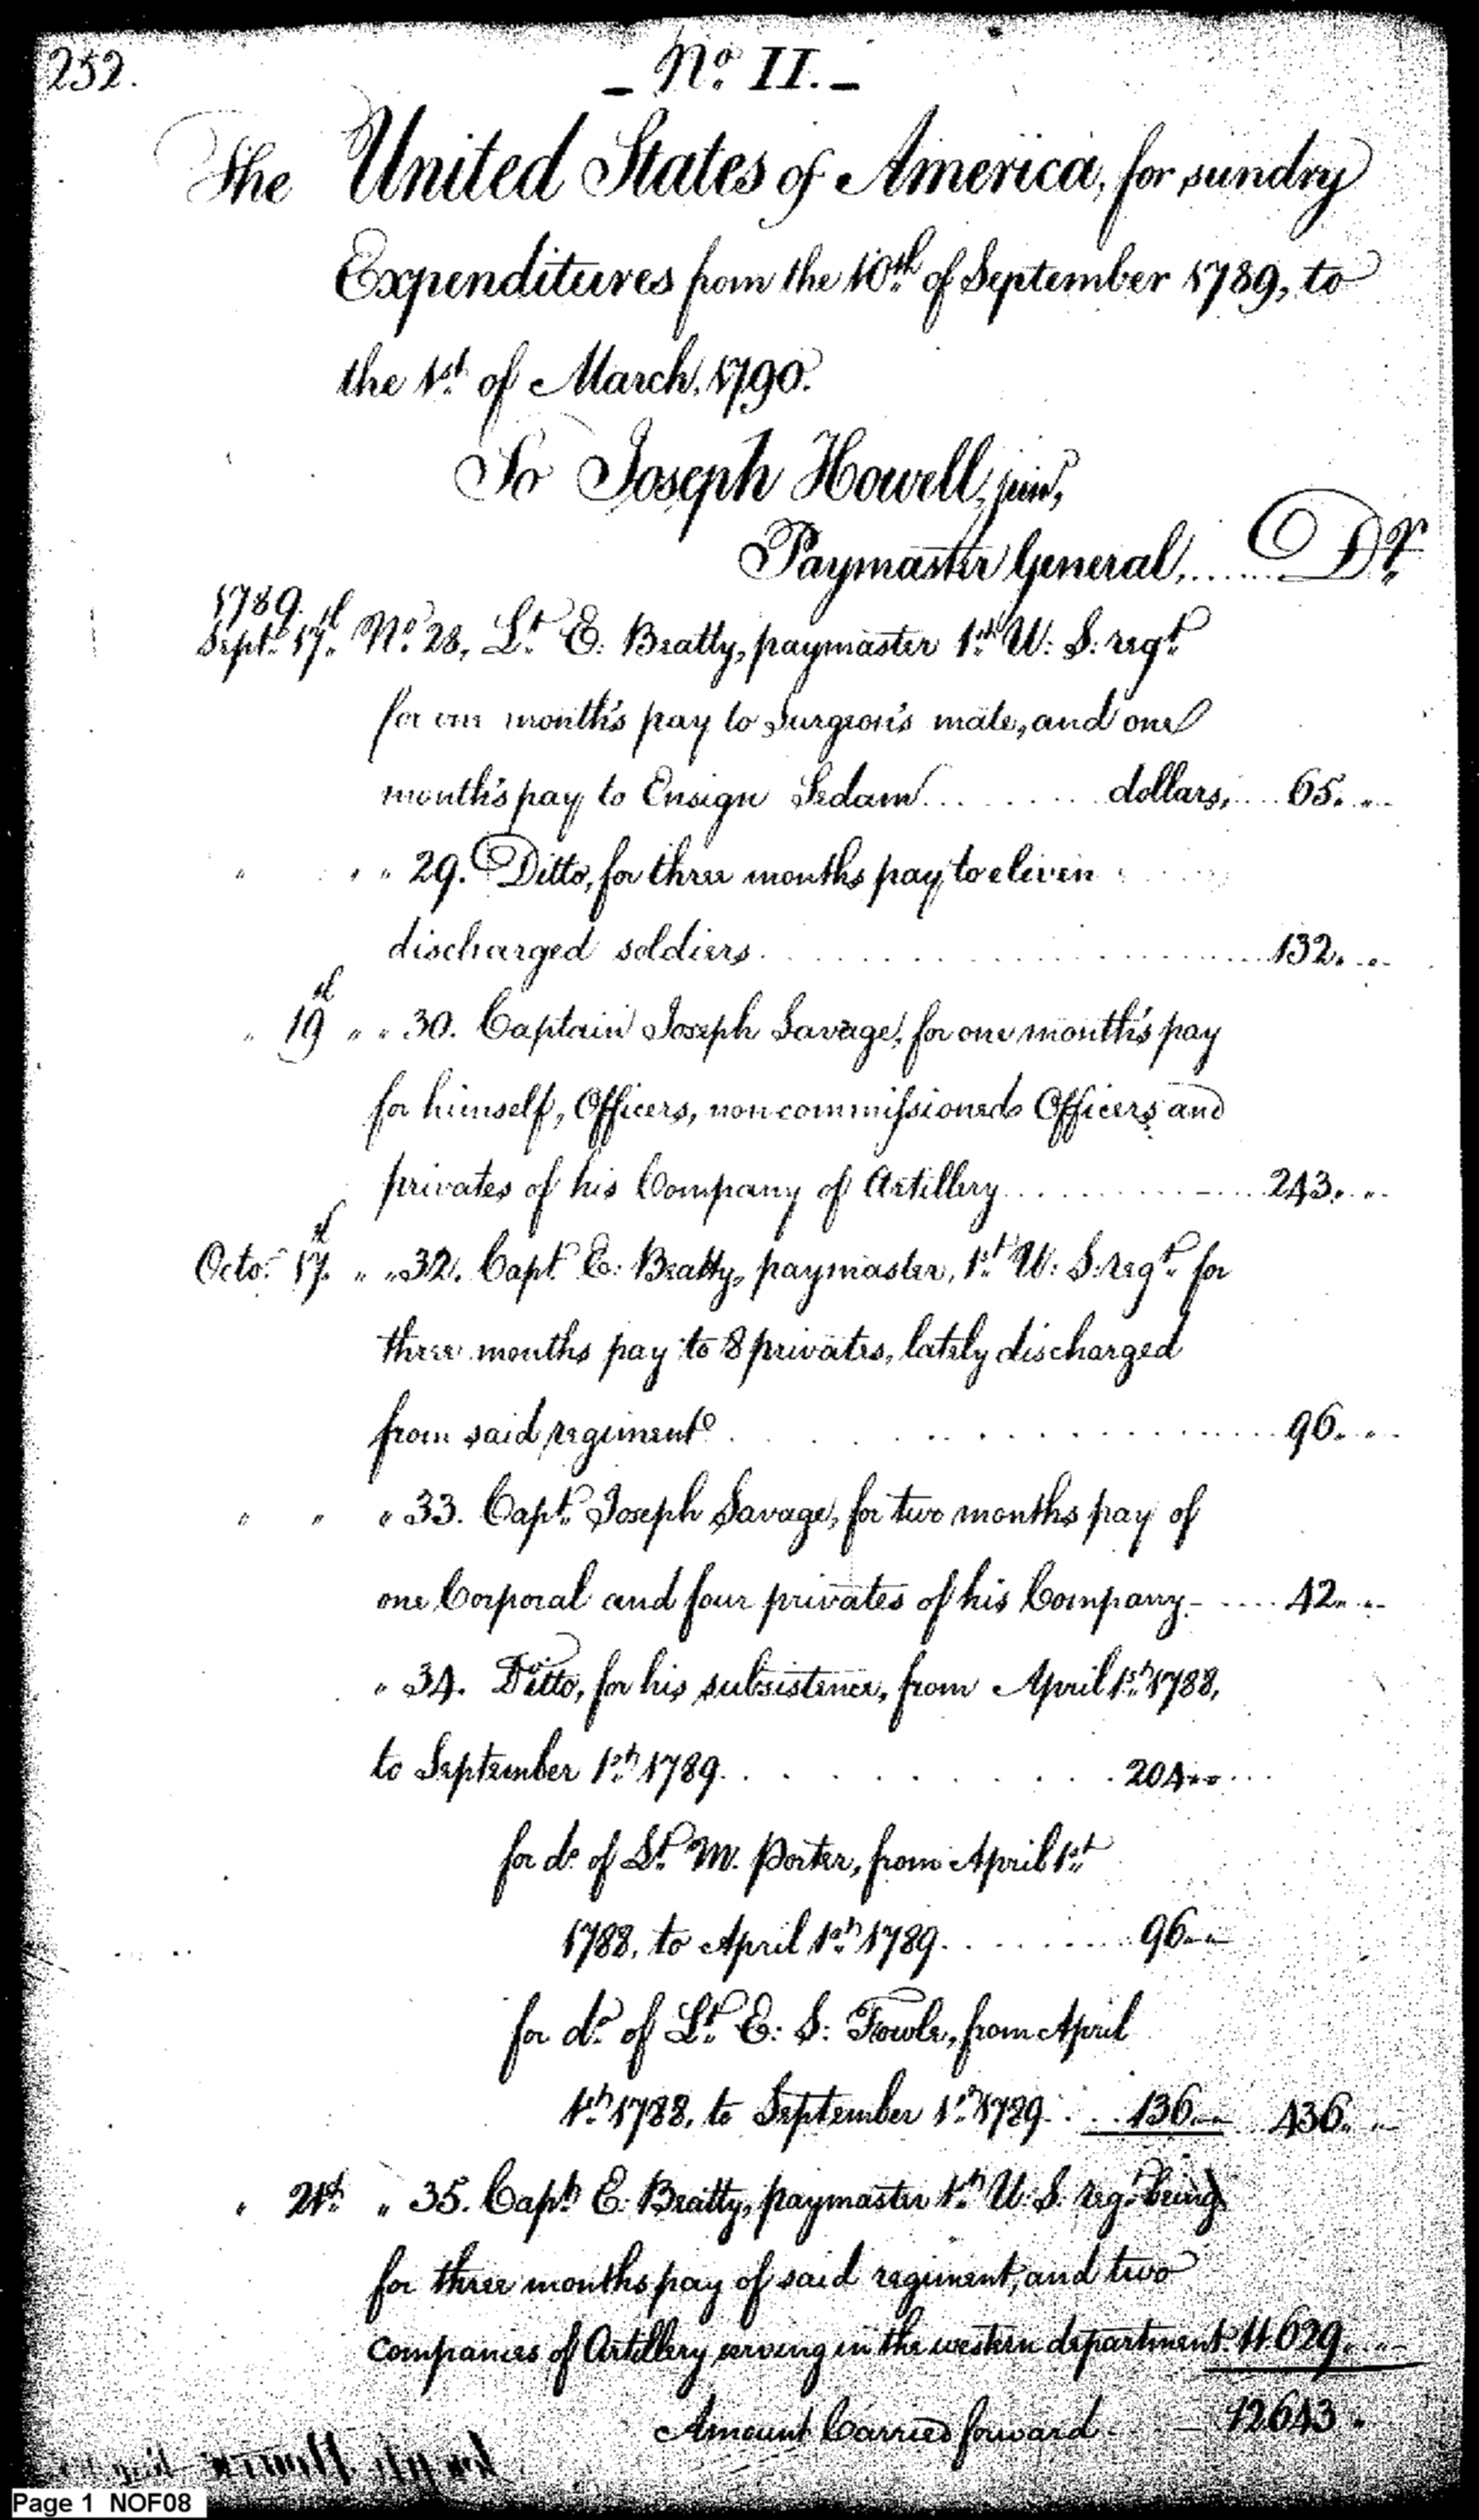 252.
- No. II. -
The United States of America, for sundry
Expenditures from the 10th of September 1789, to
the 1st of March, 1790.
To Joseph Howell, junr,
Paymaster General, ...... Dr.
1789.
Sept. 17th No. 28, Lt. E: Beatty, paymaster 1st U: S: regt.
for one month's pay to Surgeon's mate, and one
month's pay to Ensign Sedam .......... dollars, .... 65. "
" " " 29. Ditto, for three months pay, to eleven
discharged soldiers .......... 132. "
" 19th " " 30. Captain Joseph Savage, for one month's pay
for himself, Officers, non commissioned Officers and
privates of his Company of Artillery .......... 243. "
Octo. 17th " " 32. Capt. E: Beatty, paymaster, 1st U: S: regt. for
three months pay to 8 privates, lately discharged
from said regiment .......... 96. "
" " " 33. Capt. Joseph Savage, for two months pay of
one Corporal and four privates of his Company - .... 42. "
" 34. Ditto, for his subsistence, from April 1st 1788,
to September 1st 1789 .......... 204. "
for do. of Lt. M. Porter, from April 1st
1788, to April 1st 1789 .......... 96. "
for do. of Lt. E: S: Fowle, from April
1st 1788, to September 1st 1789 .... 136. " 436. "
" 21st " 35. Capt. E: Beatty, paymaster 1st U: S. regt. being
for three months pay of said regiment, and two
Companies of Artillery serving in the western department. 11.629. "
Amount Carried forward - 12643.
Page 1 NOF08